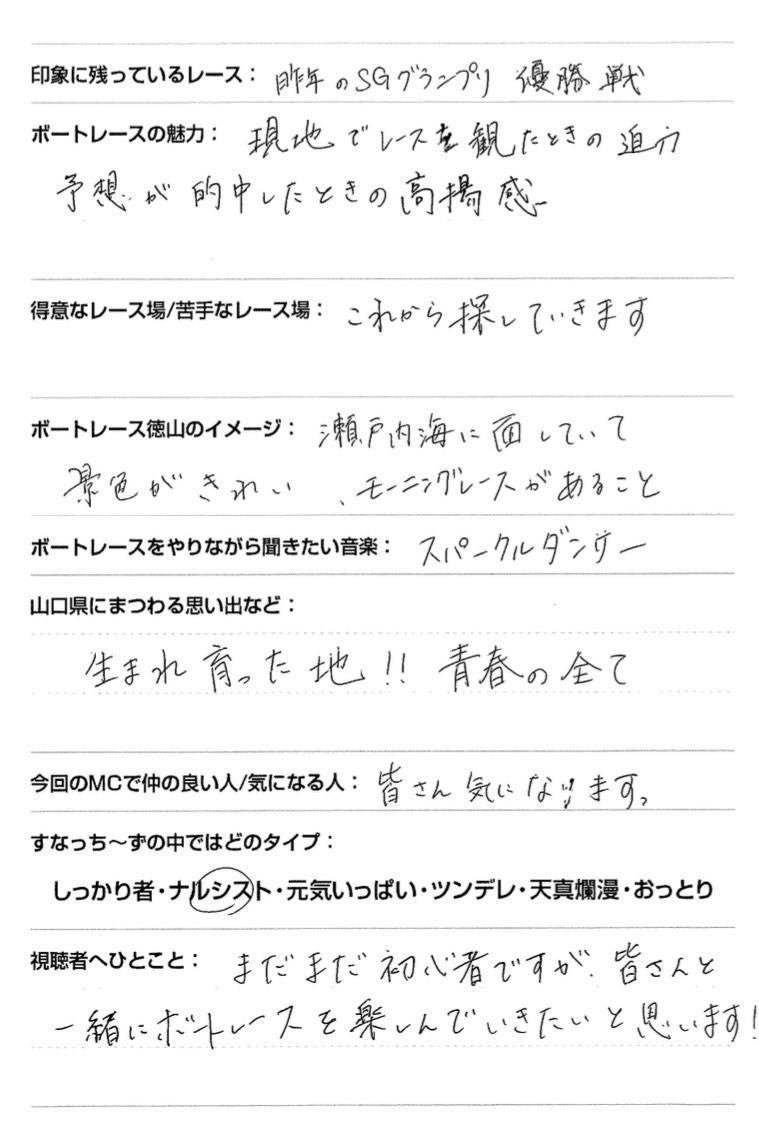 印象に残っているレース： 昨年のSGグランプリ 優勝戦
ボートレースの魅力： 現地でレースを観たときの迫力
予想が的中したときの高揚感
得意なレース場/苦手なレース場： これから探していきます
ボートレース徳山のイメージ： 瀬戸内海に面していて
景色がきれい、モーニングレースがあること
ボートレースをやりながら聞きたい音楽： スパークルダンサー
山口県にまつわる思い出など：
生まれ育った地!! 青春の全て
今回のMCで仲の良い人/気になる人： 皆さん気になります。
すなっち～ずの中ではどのタイプ：
しっかり者・ナルシスト・元気いっぱい・ツンデレ・天真爛漫・おっとり
視聴者へひとこと： まだまだ初心者ですが、皆さんと
一緒にボートレースを楽しんでいきたいと思います!